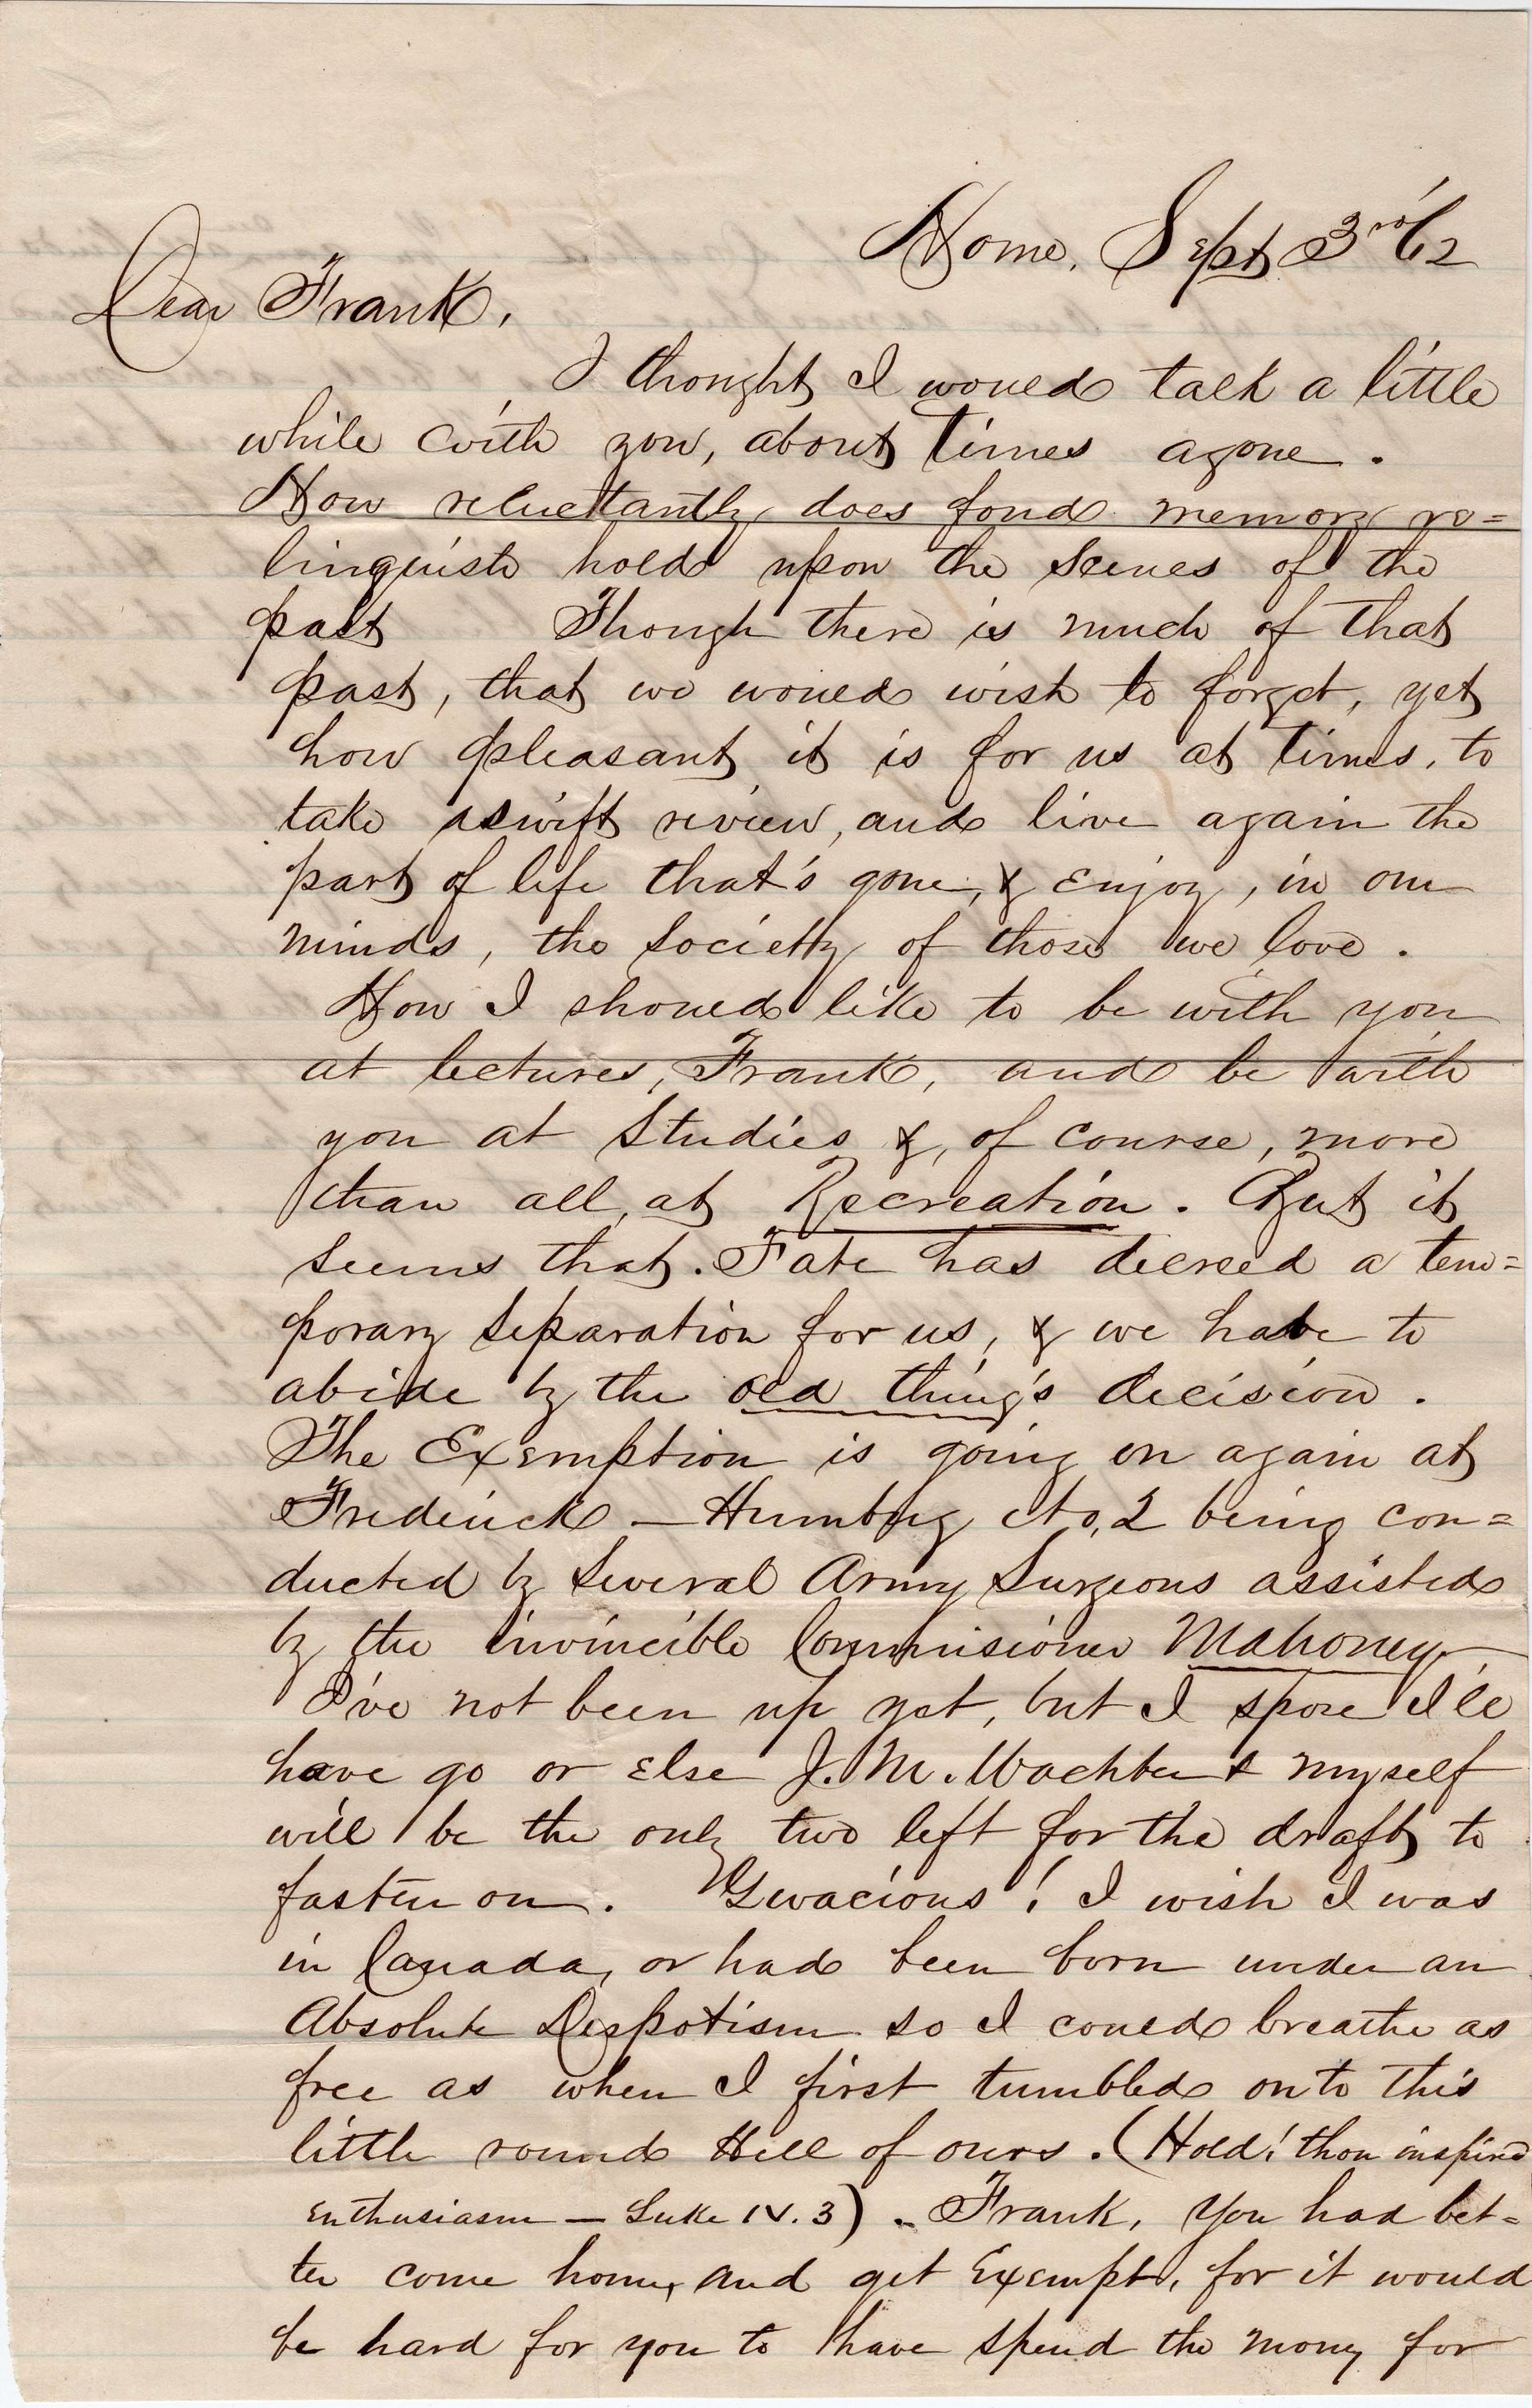 Home, Sept 3rd '62
Dear Frank,
I thought I would talk a little
while with you, about times agone.
How reluctantly does fond memory re=
linquish hold upon the scenes of the
past Though there is much of that
past, that we would wish to forget, yet
how pleasant it is for us at times, to
take a swift review, and live again the
part of life that's gone, & enjoy, in our
minds, the society of those we love.
How I should like to be with you
at lectures, Frank, and be with
you at Studies &, of course, more
than all, at Recreation. But it
seems that. Fate has decreed a tem=
porary separation for us, & we have to
abide by the old thing's decision.
The Exemption is going on again at
Frederick — Humbug No, 2 being con=
ducted by several Army Surgeons assisted
by the invincible Commisioner Mahoney.
I've not been up yet, but I spose I'll
have go or else J. M. Wachter & myself
will be the only two left for the draft to
fasten on. Gwacious! I wish I was
in Canada, or had been born under an
Absolute Despotism so I could breathe as
free as when I first tumbled onto this
little round Hill of ours. (Hold! thou inspired
enthusiasm — Luke IV. 3). Frank, you had bet=
ter come home, and get Exempt, for it would
be hard for you to have spend the money for